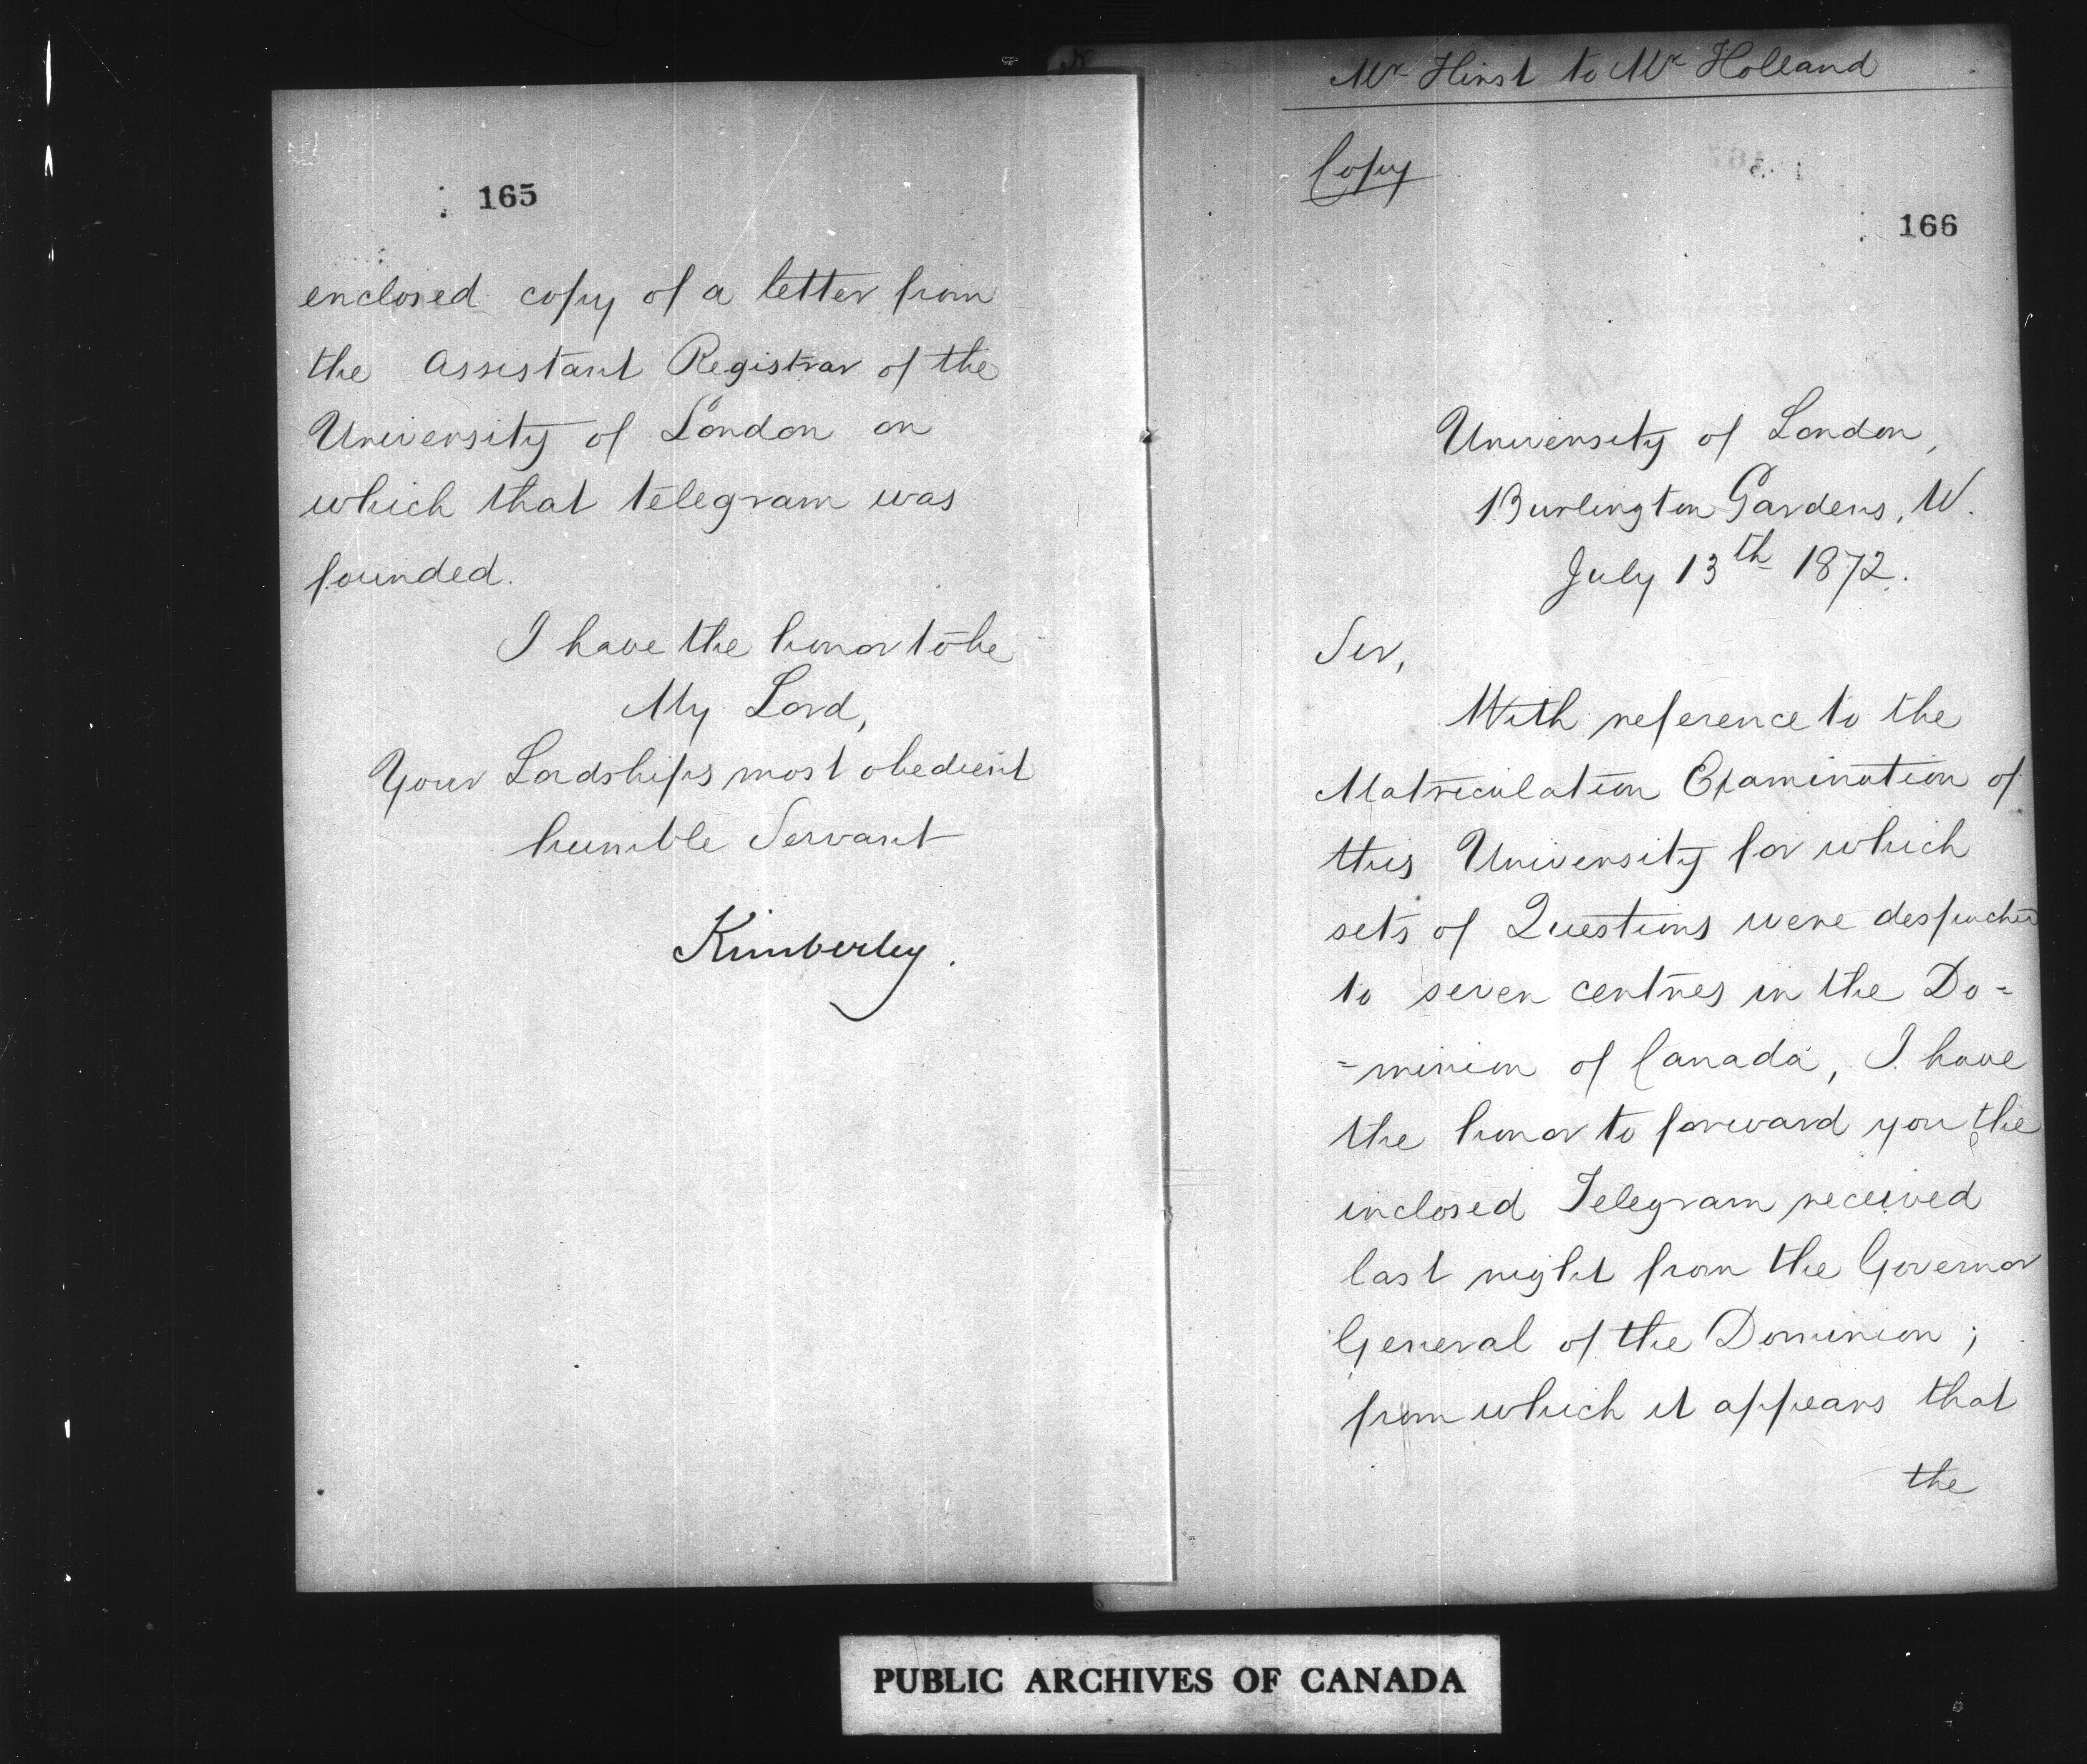 165
enclosed copy of a letter from
the Assistant Registrar of the
University of London on
which that telegram was
founded.
I have the honor to be
My Lord,
Your Lordships most obedient
humble Servant
Kimberley.
Mr Hirst to Mr Holland
Copy
166
University of London,
Burlington Gardens, W.
July 13th 1872.
Sir,
With reference to the
Matriculation Examination of
this University for which
sets of Questions were despatched
to seven centres in the Do=
=minion of Canada, I have
the honor to forward you the
inclosed Telegram received
last night from the Governor
General of the Dominion;
from which it appears that
the
PUBLIC ARCHIVES OF CANADA